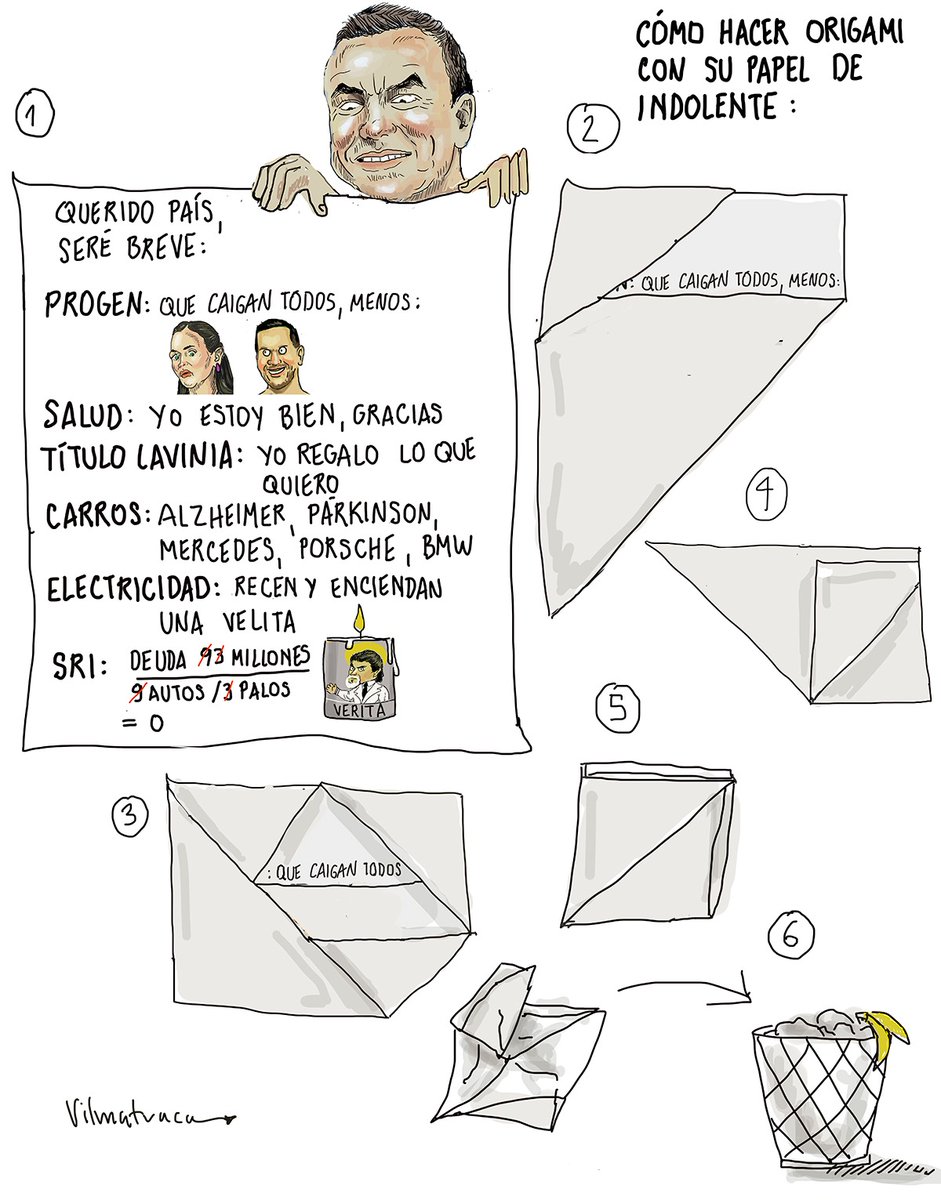 CÓMO HACER ORIGAMI
CON SU PAPEL DE
INDOLENTE:
1
QUERIDO PAÍS,
SERÉ BREVE:
PROGEN: QUE CAIGAN TODOS, MENOS:
SALUD: YO ESTOY BIEN, GRACIAS
TÍTULO LAVINIA: YO REGALO LO QUE
QUIERO
CARROS: ALZHEIMER, PÁRKINSON,
MERCEDES, PORSCHE, BMW
ELECTRICIDAD: RECEN Y ENCIENDAN
UNA VELITA
SRI: DEUDA 93 MILLONES
9 AUTOS / 3 PALOS
= 0
VERITA
2
N: QUE CAIGAN TODOS, MENOS:
3
: QUE CAIGAN TODOS
4
5
6
Vilmatraca